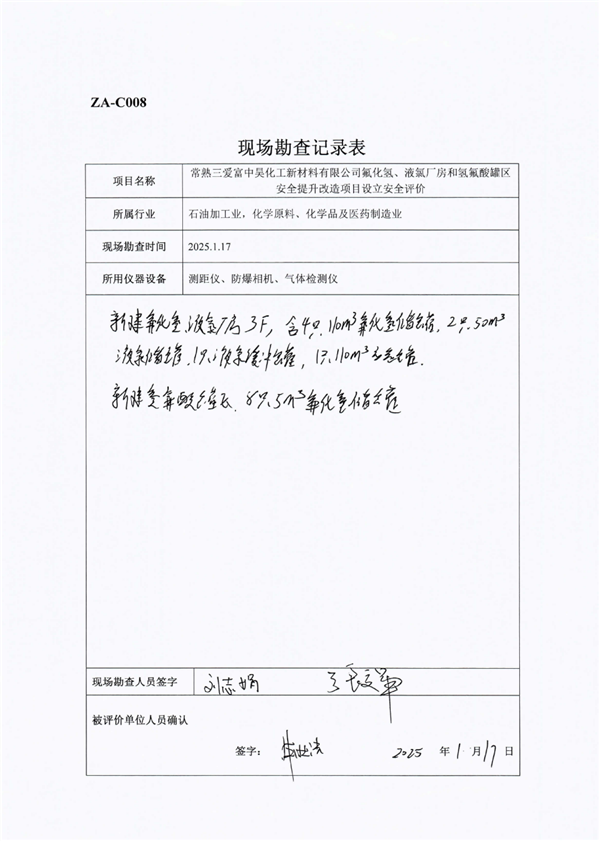 ZA-C008
现场勘查记录表
项目名称
常熟三爱富中昊化工新材料有限公司氟化氢、液氯厂房和氢氟酸罐区
安全提升改造项目设立安全评价
所属行业
石油加工业，化学原料、化学品及医药制造业
现场勘查时间
2025.1.17
所用仪器设备
测距仪、防爆相机、气体检测仪
新建氟化氢、液氯厂房3F，含4只110m³氟化氢储罐，2只50m³
液氯储罐，1只液氯缓冲罐，1只110m³应急罐.
新建氢氟酸罐区、8只5m³氟化氢储罐
现场勘查人员签字
刘志娟
被评价单位人员确认
签字：
2025 年 1 月 17 日